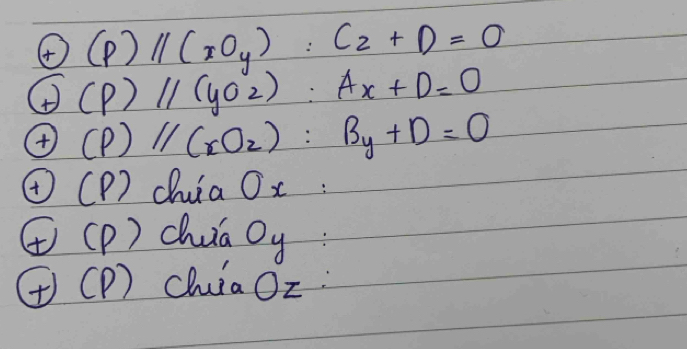 ⊕ (P) // (xOy) : Cz + D = 0
⊕ (P) // (yOz) : Ax + D = 0
⊕ (P) // (xOz) : By + D = 0
⊕ (P) chứa Ox :
⊕ (P) chứa Oy :
⊕ (P) chứa Oz :